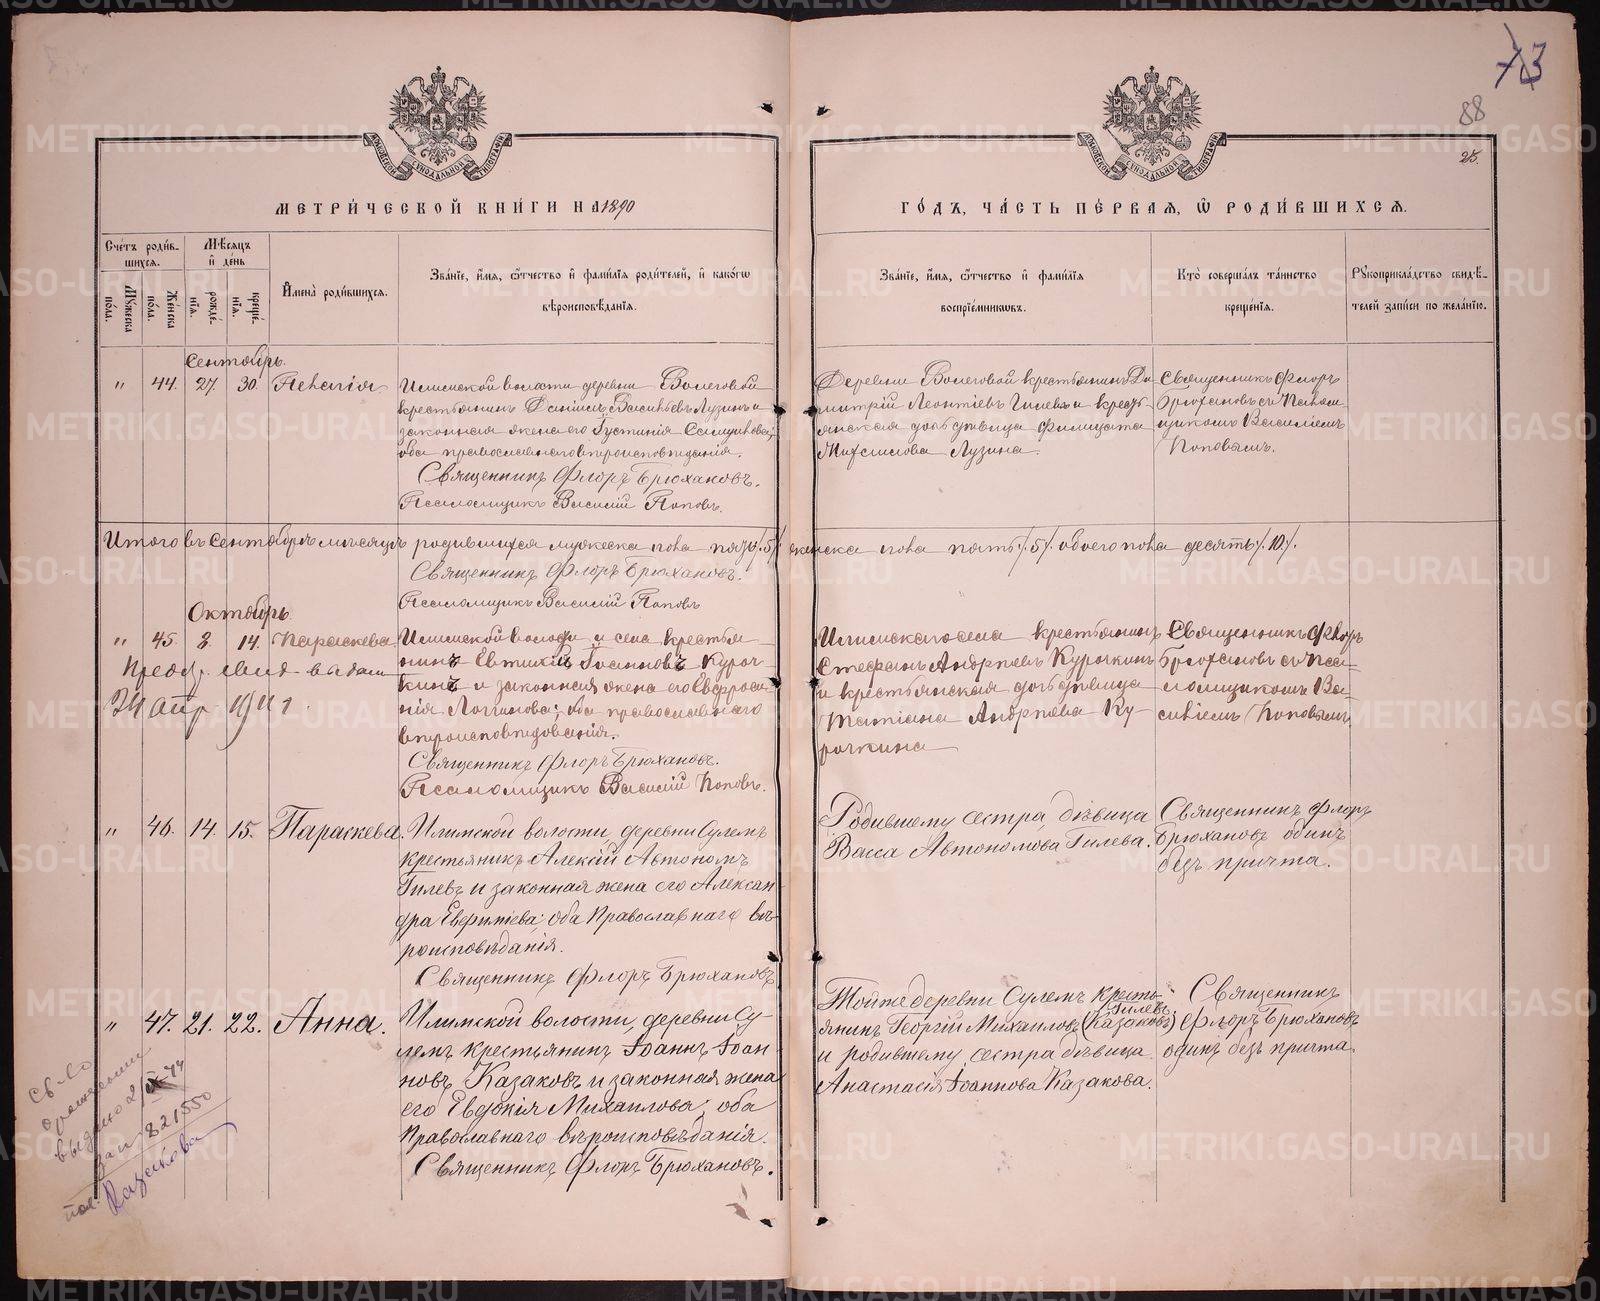 73
88
25.
МОСКОВСКОЙ СИНОДАЛЬНОЙ ТИПОГРАФІИ
МОСКОВСКОЙ СИНОДАЛЬНОЙ ТИПОГРАФІИ
МЕТРИ́ЧЕСКОЙ КНИ́ГИ НА 1890
ГО́ДЪ, ЧА́СТЬ ПЕ́РВАЯ, Ѡ РОДИ́ВШИХСЯ.
Сче́тъ роди́в-
шихся.
Му́жеска
по́ла.
Же́нска
по́ла.
Мѣ́сяцъ
и де́нь
рожде́-
нія.
креще́-
нія.
Имена̀ роди́вшихся.
Зва́ніе, и́мя, ѻ́тчество и фами́лія роди́телей, и како́гѡ
вѣроисповѣ́данія.
Зва́ніе, и́мя, ѻ́тчество и фами́лія
воспріе́мникѡвъ.
Кто̀ соверша́лъ та́инство
креще́нія.
Рꙋкоприкла́дство свидѣ́-
телей за́писи по жела́нію.
Сентябрь
" 44. 27. 30. Пелагія
Илимской волости деревни Волеговой
крестьянинъ Даніилъ Васильевъ Лузинъ и
законная жена его Іустинія
оба православнаго вѣроисповѣданія.
Священникъ Флоръ Брюхановъ.
Псаломщикъ Василій Поповъ.
Деревни Волеговой крестьянинъ Ди-
митрій Леонтіевъ Гилевъ и кресть-
янская дочь дѣвица Филицата
Михаилова Лузина.
Священникъ Флоръ
Брюхановъ съ Псалом-
щикомъ Василіемъ
Поповымъ.
Итого въ Сентябрѣ мѣсяцѣ родившихся мужеска пола пять /.5./ женска пола пять /.5./ обоего пола десять /.10./.
Священникъ Флоръ Брюхановъ.
Псаломщикъ Василій Поповъ
Октябрь
" 45. 8. 14. Параскева
24 апр 1911 г.
Илимской волости и села крестья-
нинъ Евтихій Іоанновъ Куроч-
кинъ и законная жена его Евфроси-
нія Логинова; оба православнаго
вѣроисповѣданія.
Священникъ Флоръ Брюхановъ.
Псаломщикъ Василій Поповъ.
Илимскаго села крестьянинъ
Стефанъ Андреевъ Курочкинъ
и крестьянская дочь дѣвица
Татіана Андреева Ку-
рочкина
Священникъ Флоръ
Брюхановъ съ Пса-
ломщикомъ Ва-
силіемъ Поповымъ
" 46. 14. 15. Параскева.
Илимской волости, деревни Сулемъ
крестьянинъ Алексій Автономъ
Гилевъ и законная жена его Алексан-
дра Евфимиева; оба Православнаго вѣ-
роисповѣданія.
Священникъ Флоръ Брюхановъ
Родившему сестра дѣвица
Васса Автономова Гилева.
Священникъ Флоръ
Брюхановъ одинъ
безъ причта.
" 47. 21. 22. Анна.
Илимской волости, деревни Су-
лемъ крестьянинъ Іоаннъ Іоан-
новъ Казаковъ и законная жена
его Евдокія Михаилова, оба
Православнаго вѣроисповѣданія.
Священникъ Флоръ Брюхановъ.
Тойже деревни Сулемъ кресть-
янинъ Георгій Михаиловъ Гилевъ (Казаковъ)
и родившему сестра дѣвица
Анастасія Іоаннова Казакова.
Священникъ
Флоръ Брюхановъ
одинъ безъ причта.
Св-во
о рождении
выдано
821550
Казакова
METRIKI.GASO-URAL.RU